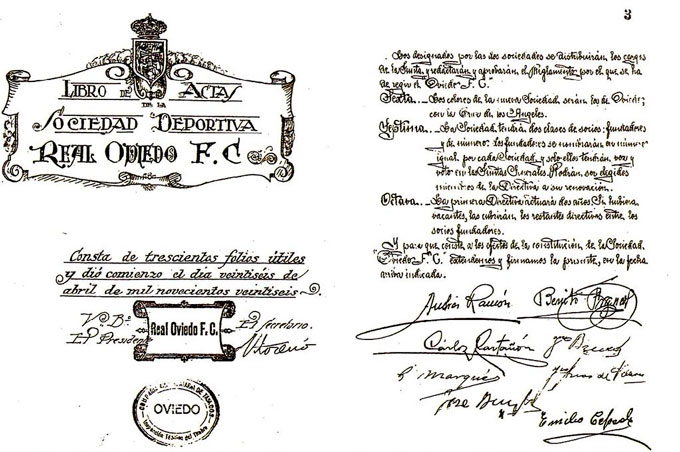 LIBRO DE ACTAS
DE LA
SOCIEDAD DEPORTIVA
REAL OVIEDO F.C.
Consta de trescientos folios útiles
y dió comienzo el día veintiséis de
abril de mil novecientos veintiséis.
Vº Bº
El Presidente
Real Oviedo F. C.
El Secretario.
OVIEDO
3
Los designados por las dos sociedades se distribuirán los cargos
de la Junta, y redactarán y aprobarán el Reglamento por el que se ha
de regir el Oviedo F. C.
Sexta.- Los colores de la nueva Sociedad serán los de Oviedo;
con la Cruz de los Angeles.
Séptima.- La Sociedad tendrá dos clases de socios: fundadores
y de número; los fundadores se nombrarán en número
igual por cada Sociedad y solo ellos tendrán voz y
voto en las Juntas Generales. Podrán ser elegidos
miembros de la Directiva a su renovación.
Octava.- La primera Directiva actuará dos años. Si hubiera
vacantes, las cubrirán los restantes directivos entre los
socios fundadores.
Y para que conste a los efectos de la constitución de la Sociedad
Oviedo F. C. extendemos y firmamos la presente, en la fecha
arriba indicada.
Ramón
Benito
Carlos
Marqués
José
Emilio